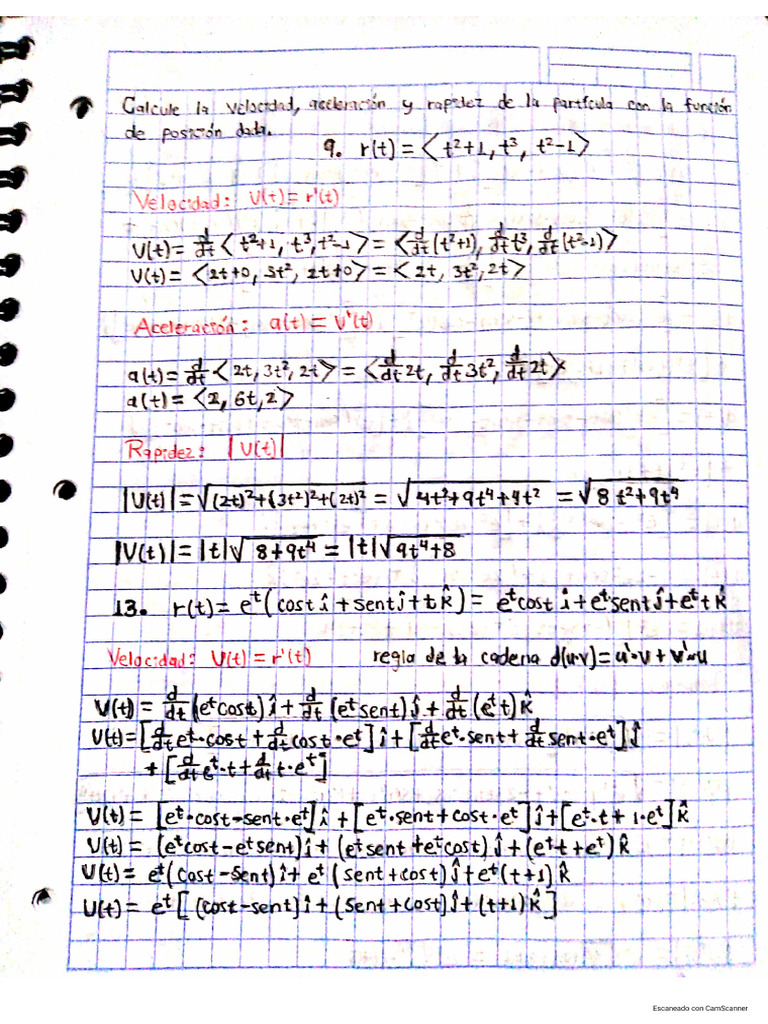 Calcule la velocidad, aceleración y rapidez de la partícula con la función
de posición dada.
9. r(t) = ⟨t²+1, t³, t²-1⟩
Velocidad: V(t) = r'(t)
V(t) = d/dt ⟨t²+1, t³, t²-1⟩ = ⟨d/dt (t²+1), d/dt t³, d/dt (t²-1)⟩
V(t) = ⟨2t+0, 3t², 2t+0⟩ = ⟨2t, 3t², 2t⟩
Aceleración: a(t) = V'(t)
a(t) = d/dt ⟨2t, 3t², 2t⟩ = ⟨d/dt 2t, d/dt 3t², d/dt 2t⟩
a(t) = ⟨2, 6t, 2⟩
Rapidez: |V(t)|
|V(t)| = √((2t)²+(3t²)²+(2t)²) = √(4t²+9t⁴+4t²) = √(8t²+9t⁴)
|V(t)| = |t|√(8+9t⁴) = |t|√(9t⁴+8)
13. r(t) = eᵗ(cost î + sent ĵ + t k̂) = eᵗcost î + eᵗsent ĵ + eᵗt k̂
Velocidad: V(t) = r'(t) regla de la cadena d(u·v) = u'·v + v'·u
V(t) = d/dt (eᵗcost) î + d/dt (eᵗsent) ĵ + d/dt (eᵗt) k̂
V(t) = [d/dt eᵗ·cost + d/dt cost·eᵗ] î + [d/dt eᵗ·sent + d/dt sent·eᵗ] ĵ
+ [d/dt eᵗ·t + d/dt t·eᵗ]
V(t) = [eᵗ·cost - sent·eᵗ] î + [eᵗ·sent + cost·eᵗ] ĵ + [eᵗ·t + 1·eᵗ] k̂
V(t) = (eᵗcost - eᵗsent) î + (eᵗsent + eᵗcost) ĵ + (eᵗt + eᵗ) k̂
V(t) = eᵗ(cost - sent) î + eᵗ(sent + cost) ĵ + eᵗ(t+1) k̂
V(t) = eᵗ[(cost - sent) î + (sent + cost) ĵ + (t+1) k̂]
Escaneado con CamScanner